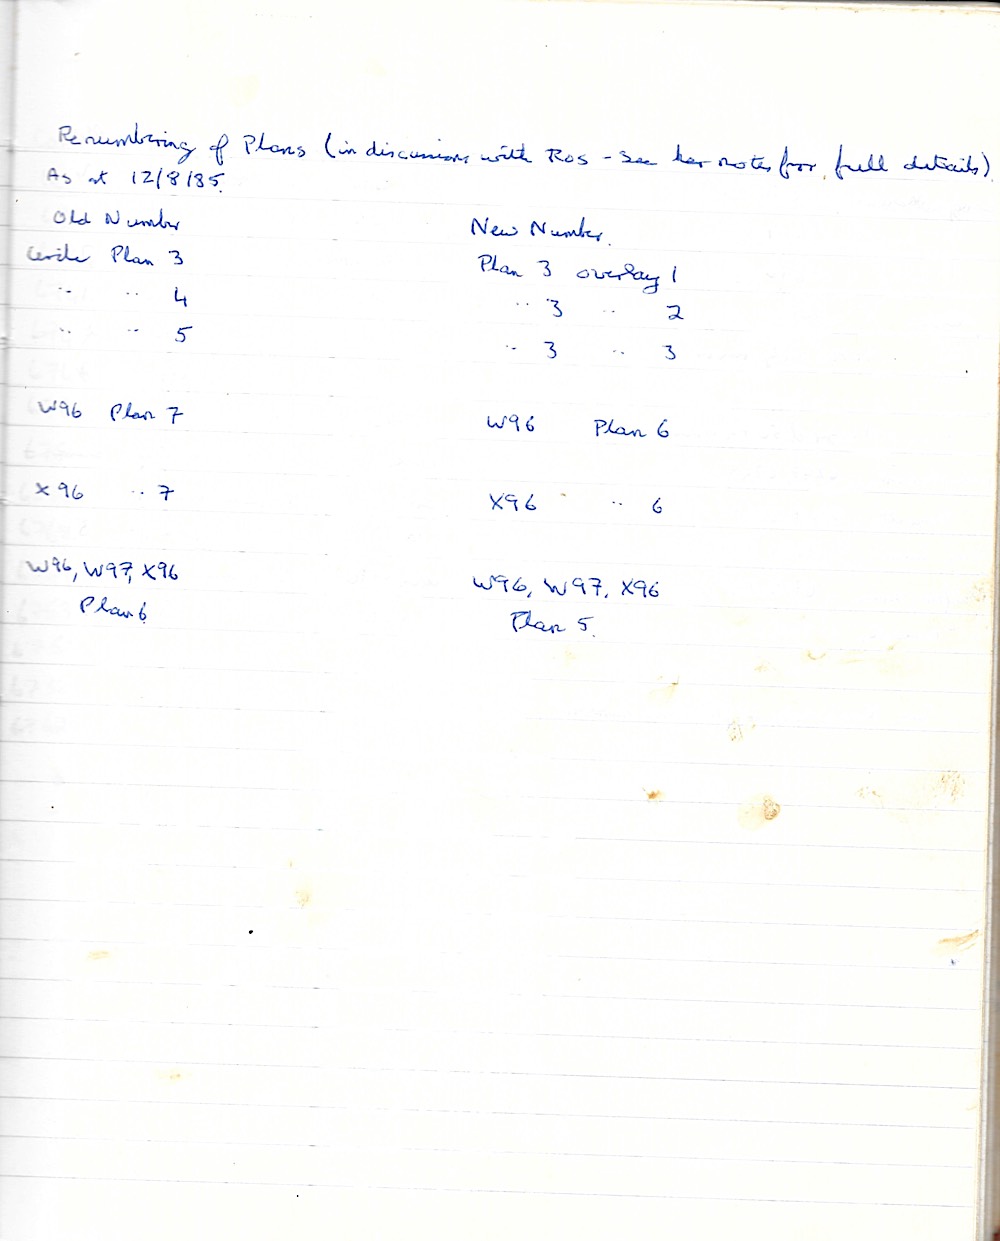 Renumbering of Plans (in discussions with Ros - See her notes for full details)
As at 12/8/85.
Old Number New Number.
Circle Plan 3 Plan 3 overlay 1
" " 4 " 3 " 2
" " 5 " 3 " 3
W96 Plan 7 W96 Plan 6
X96 " 7 X96 " 6
W96, W97, X96 W96, W97, X96
Plan 6 Plan 5.